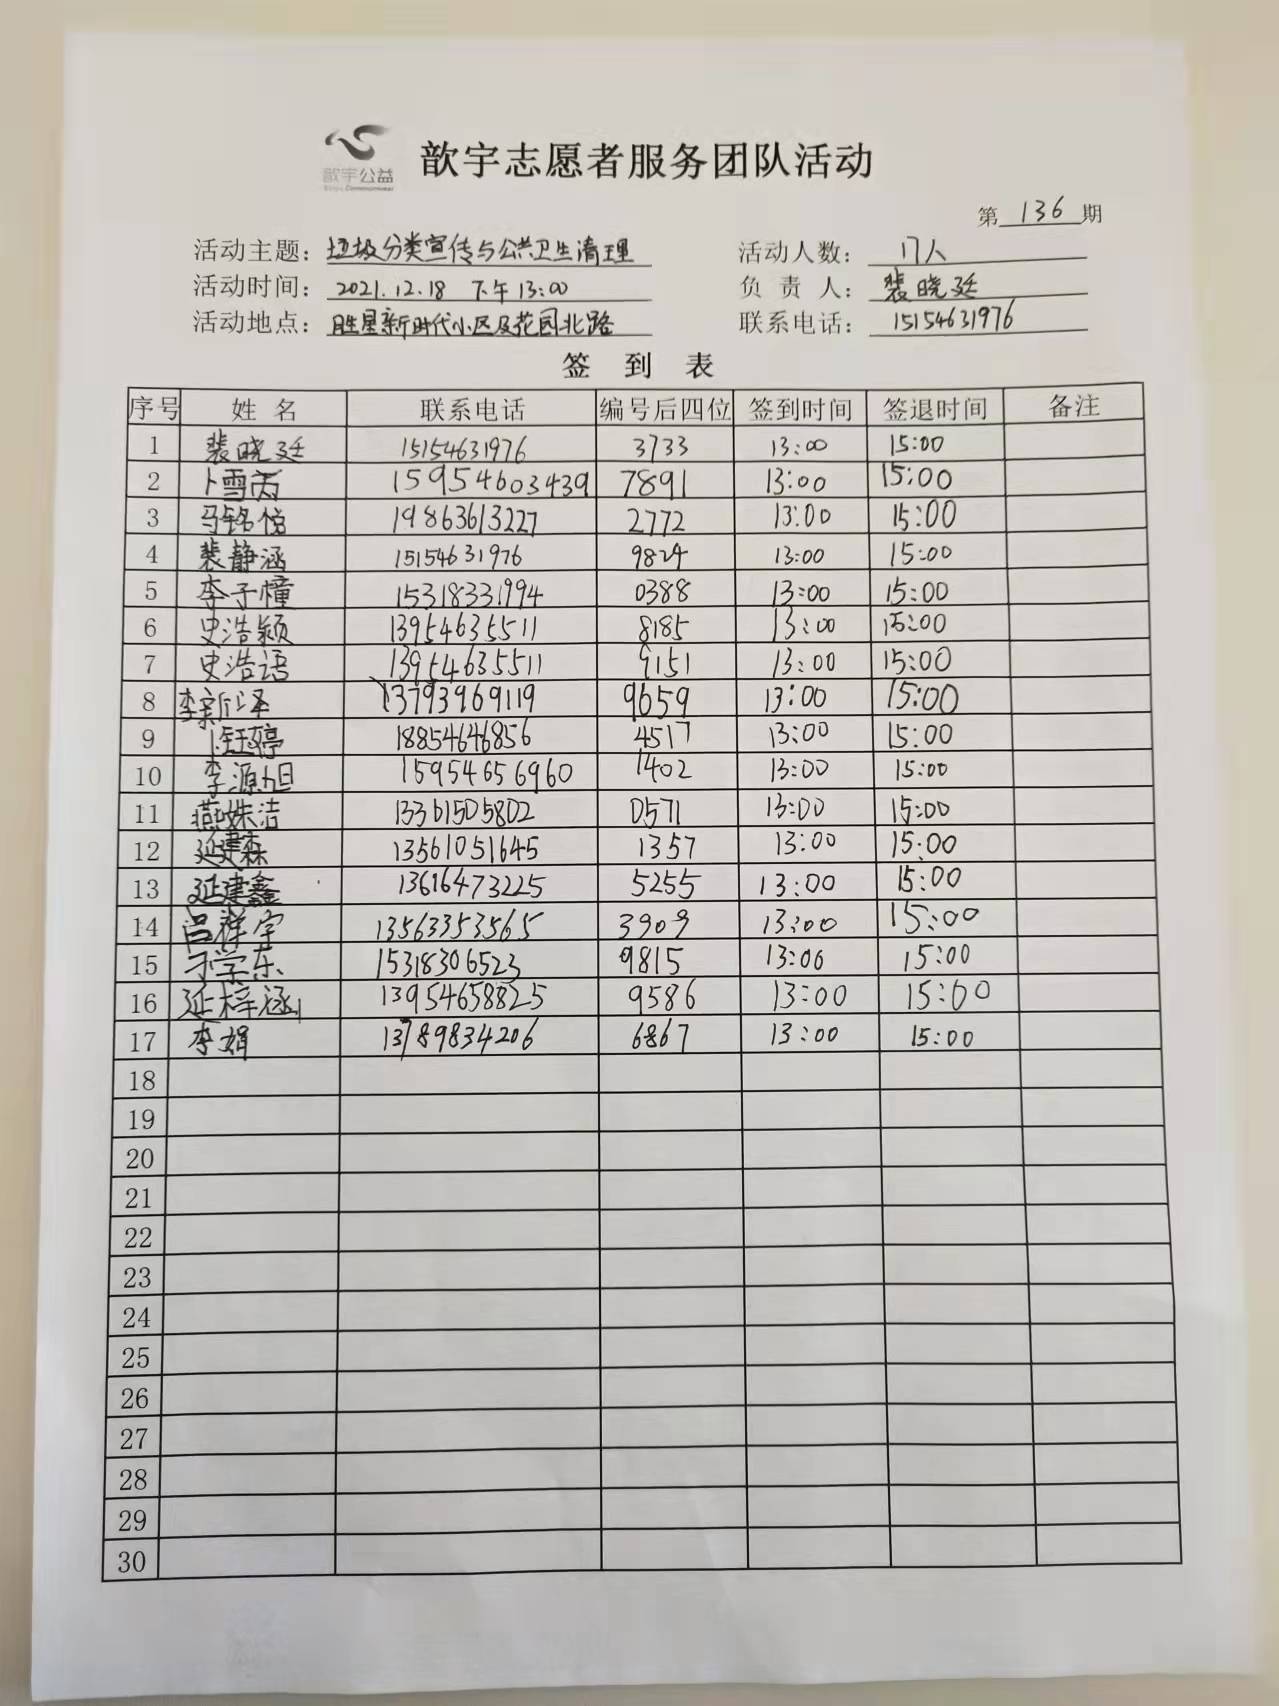 歆宇公益
歆宇志愿者服务团队活动
第 136 期
活动主题：垃圾分类宣传与公共卫生清理 活动人数：17人
活动时间：2021.12.18 下午 13:00 负责人：裴晓廷
活动地点：胜星新时代小区及花园北路 联系电话：15154631976
签到表
序号 姓名 联系电话 编号后四位 签到时间 签退时间 备注
1 裴晓廷 15154631976 3733 13:00 15:00
2 卜雪芮 15954603439 7891 13:00 15:00
3 马铭悦 19863613227 2772 13:00 15:00
4 裴静涵 15154631976 9824 13:00 15:00
5 李子橦 15318331994 0388 13:00 15:00
6 史浩颖 13954635511 8185 13:00 15:00
7 史浩语 13954635511 9151 13:00 15:00
8 李新泽 13793969119 9659 13:00 15:00
9 卜钰婷 18854646856 4517 13:00 15:00
10 李源旭 15954656960 1402 13:00 15:00
11 燕姝洁 13361505802 0571 13:00 15:00
12 延建森 13561051645 1357 13:00 15:00
13 延建鑫 13616473225 5255 13:00 15:00
14 吕祥宇 13563353565 3909 13:00 15:00
15 学东 15318306523 9815 13:00 15:00
16 延梓涵 13954658825 9586 13:00 15:00
17 李娟 13789834206 6867 13:00 15:00
18
19
20
21
22
23
24
25
26
27
28
29
30